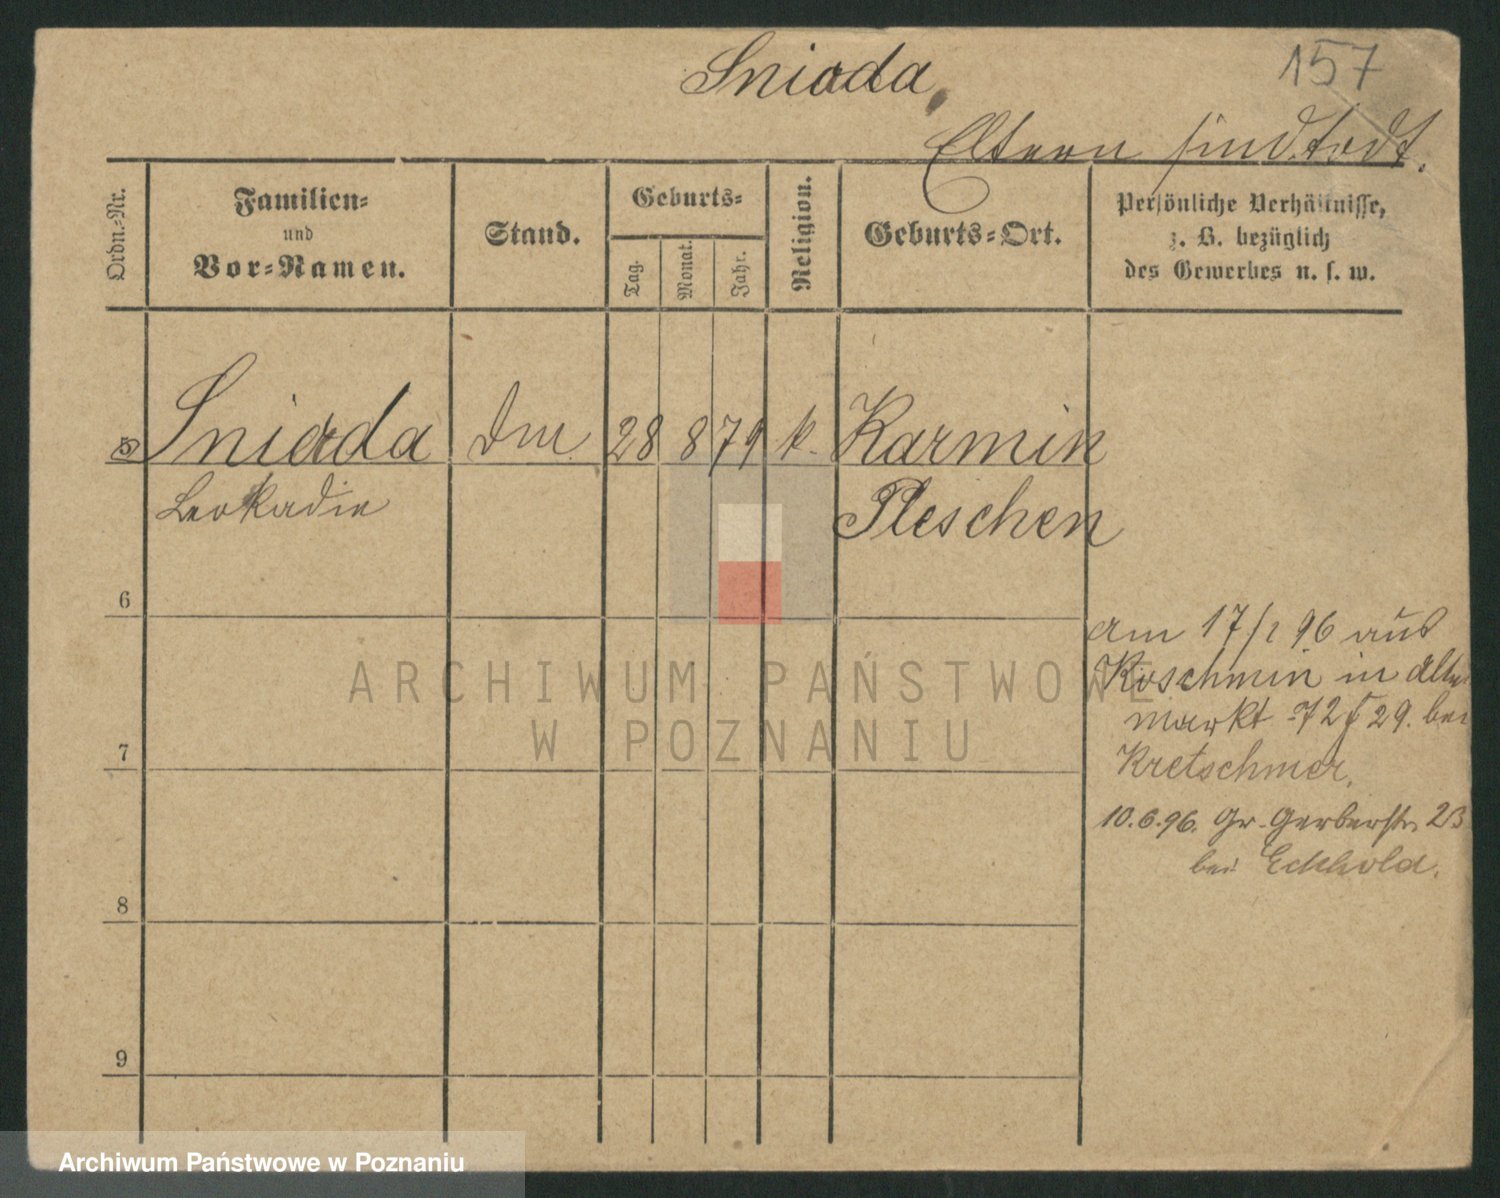 157
Sniada
Eltern sind todt.
Ordn.-Nr.
Familien-
und
Vor-Namen.
Stand.
Geburts-
Tag.
Monat.
Jahr.
Religion.
Geburts-Ort.
Persönliche Verhältnisse,
z. B. bezüglich
des Gewerbes u. s. w.
5 Sniada 28 8 79 k. Karmin
Leokadie Pleschen
6
am 17/1 96 aus
Koschmin in Alter
markt 72 29. bei
Kretschmer.
7
10.6.96. Gr. Gerberstr. 23
bei Eckhold.
8
9
ARCHIWUM PAŃSTWOWE
W POZNANIU
Archiwum Państwowe w Poznaniu